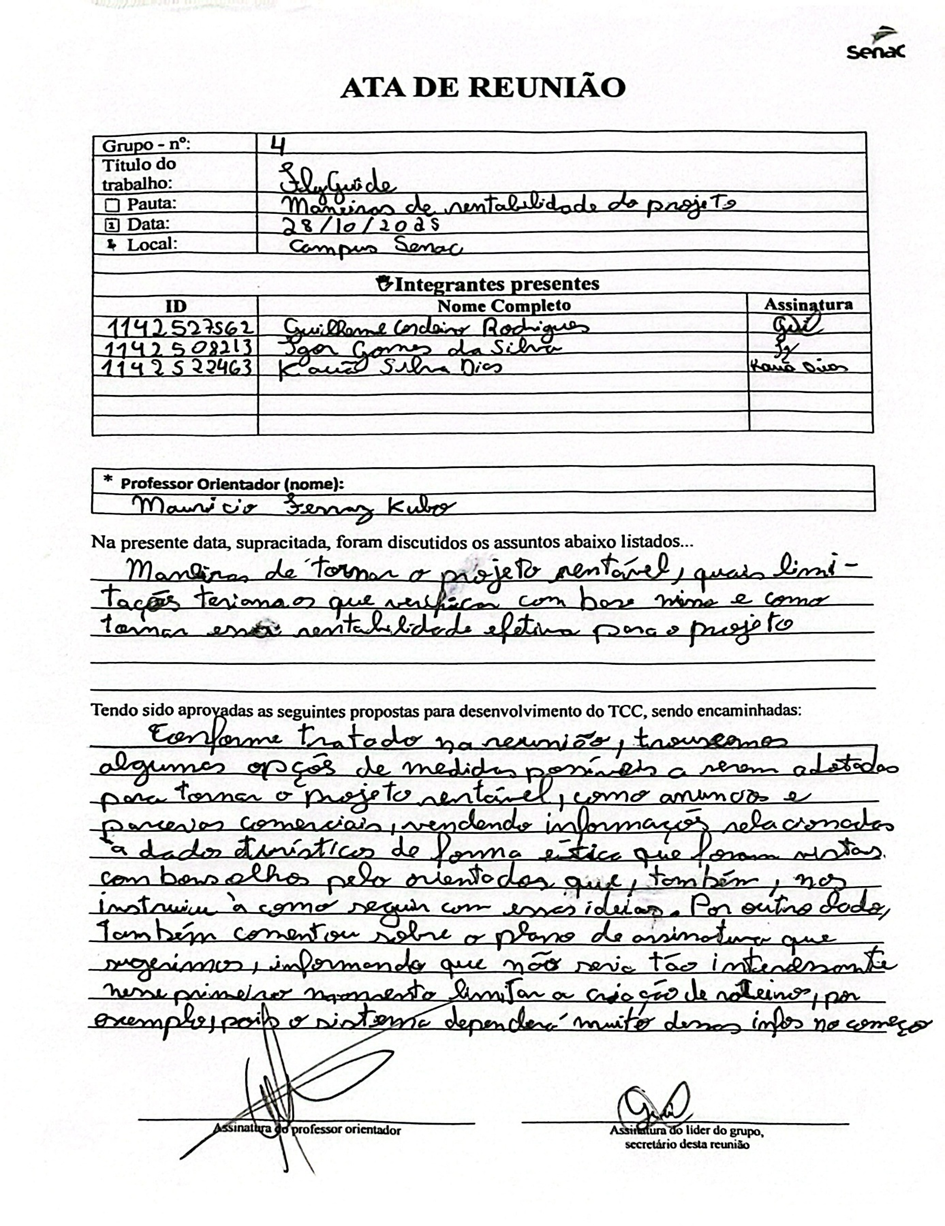 Senac
ATA DE REUNIÃO
Grupo - nº: 4
Título do
trabalho: FlyGuide
Pauta: Maneiras de rentabilidade do projeto
Data: 28/10/2025
Local: Campus Senac
Integrantes presentes
ID Nome Completo Assinatura
1142527562 Guilherme Cordeiro Rodrigues Gui
1142508213 Igor Gomes da Silva
1142522463 Kauã Silva Dias Kauã Dias
* Professor Orientador (nome):
Mauricio Ferraz Kubo
Na presente data, supracitada, foram discutidos os assuntos abaixo listados...
Maneiras de tornar o projeto rentável, quais limi-
tações teriamos que verificar com base nisso e como
tornar essa rentabilidade efetiva para o projeto
Tendo sido aprovadas as seguintes propostas para desenvolvimento do TCC, sendo encaminhadas:
Conforme tratado na reunião, trouxemos
algumas opções de medidas possíveis a serem adotadas
para tornar o projeto rentável, como anuncos e
parcerias comerciais, vendendo informações relacionadas
à dados turísticos de forma ética que foram vistas
com bons olhos pelo orientados que, também, nos
instruiu à como seguir com essas ideias. Por outro lado,
também comentou sobre o plano de assinatura que
sugerimos, informando que não seria tão interessante
nesse primeiro momento limitar a criação de roteiros, por
exemplo, pois o sistema dependerá muito dessas infos no começo
Assinatura do professor orientador
Gui
Assinatura do líder do grupo,
secretário desta reunião